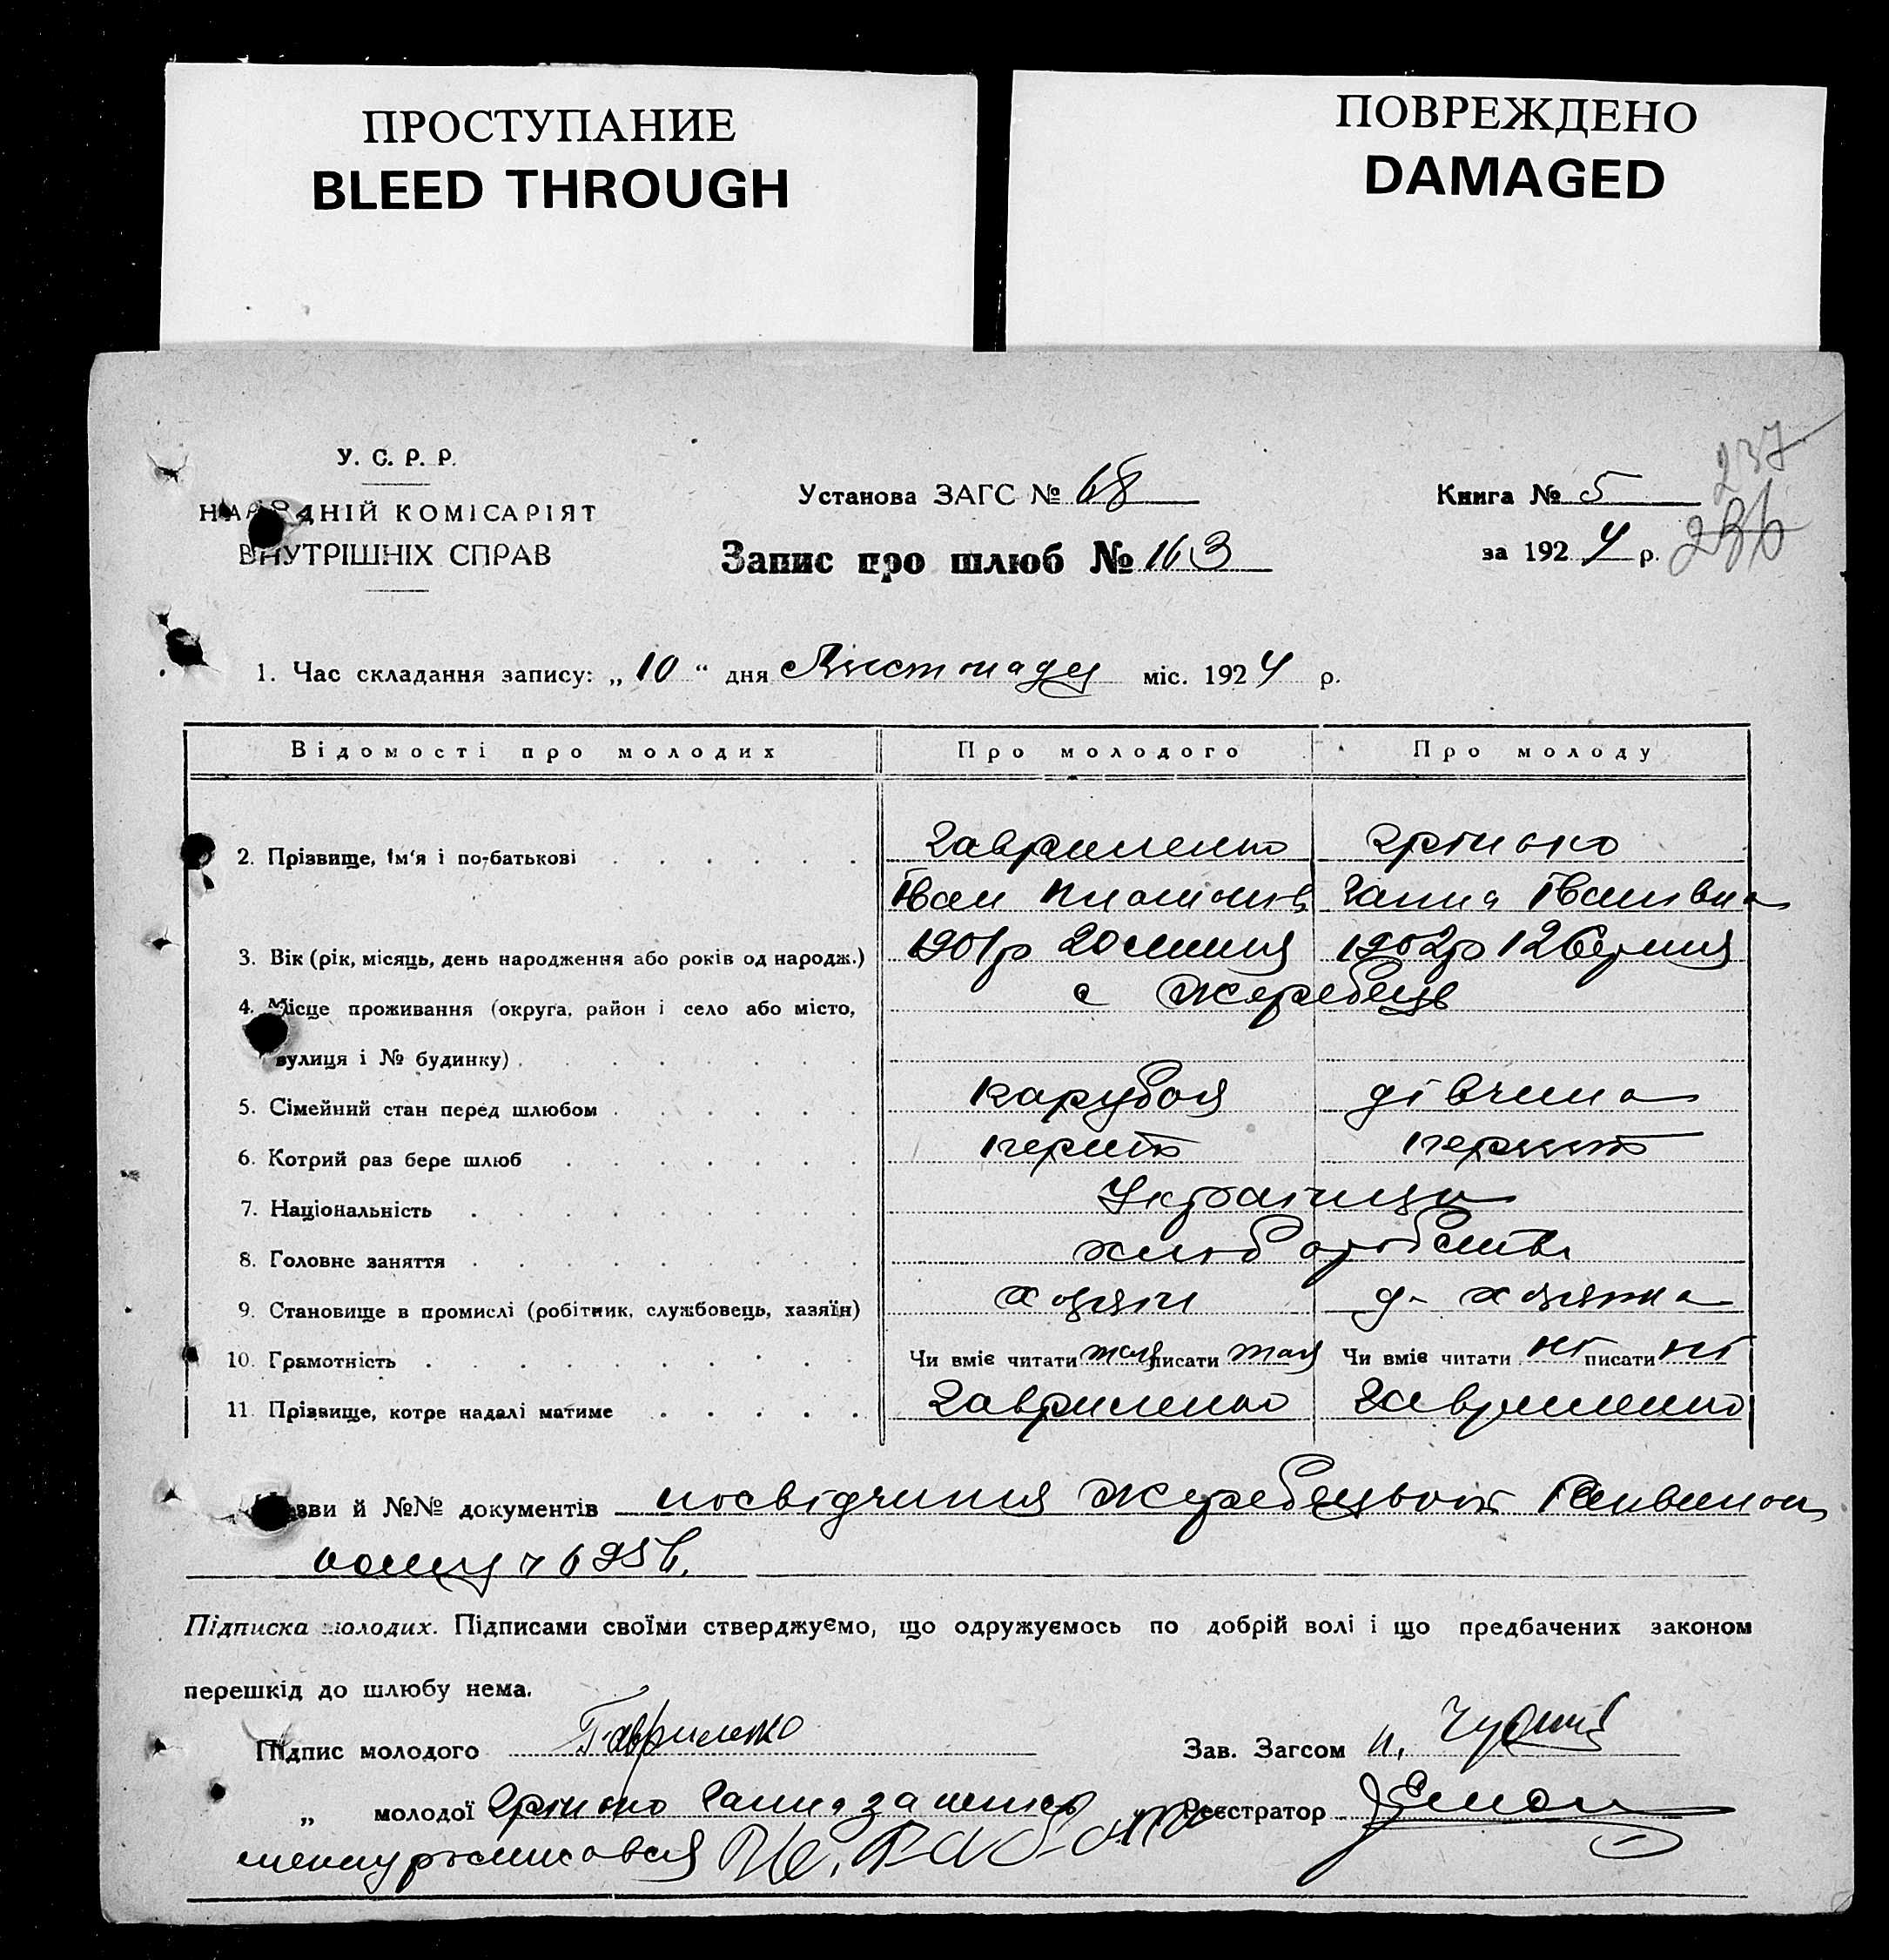 ПРОСТУПАНИЕ
BLEED THROUGH
ПОВРЕЖДЕНО
DAMAGED
237
236
У. С. Р. Р.
НАРОДНІЙ КОМІСАРІЯТ
ВНУТРІШНІХ СПРАВ
Установа ЗАГС № 68
Запис про шлюб № 163
Книга № 5
за 1924 р.
1. Час складання запису: „ 10 “ дня Листопада міс. 1924 р.
Відомості про молодих Про молодого Про молоду
2. Прізвище, ім'я і по-батькові Гавриленко Грінько
Іван Ганна Іванівна
3. Вік (рік, місяць, день народження або років од народж.) 1901р 20 1902р 12
4. Місце проживання (округа, район і село або місто, с Жеребець
вулиця і № будинку)
5. Сімейний стан перед шлюбом парубок дівчина
6. Котрий раз бере шлюб перший перший
7. Національність Українци
8. Головне заняття хліборобство
9. Становище в промислі (робітник, службовець, хазяїн) хозяін д- хозяйка
10. Грамотність Чи вміє читати так писати так Чи вміє читати ні писати ні
11. Прізвище, котре надалі матиме Гавриленко Гавриленко
Назви й №№ документів посвідчиння Жеребецького
6956.
Підписка молодих. Підписами своїми стверджуємо, що одружуємось по добрій волі і що предбачених законом
перешкід до шлюбу нема.
Підпис молодого Гавриленко
Зав. Загсом
„ молодої Грінько Ганна
Реєстратор